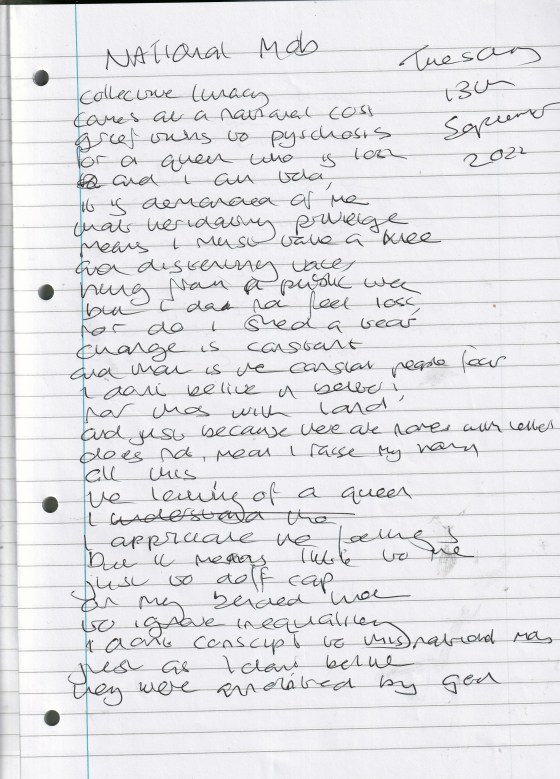 NATIONAL Mob
Tuesday
13th
September
2022
collective lunacy
comes at a national cost
grief turns to pyschosis
for a queen who is lost
and I am told,
it is demanded of me
that heridatary privilege
means I must take a knee
and disterning
hung from a public
but I do not feel loss,
nor do I shed a tear
change is constant
and man is the constant people fear
I dont belive in betters,
nor those with land,
and just because there are names with letters
does not, mean I raise my hand
all this
the leaving of a queen
I understand the
I appriciate the feelings
but it means little to me
just to doff cap
on my bended knee
to ignore inequality
I dont conscript to this national mob
just as I dont belive
they were anointed by god